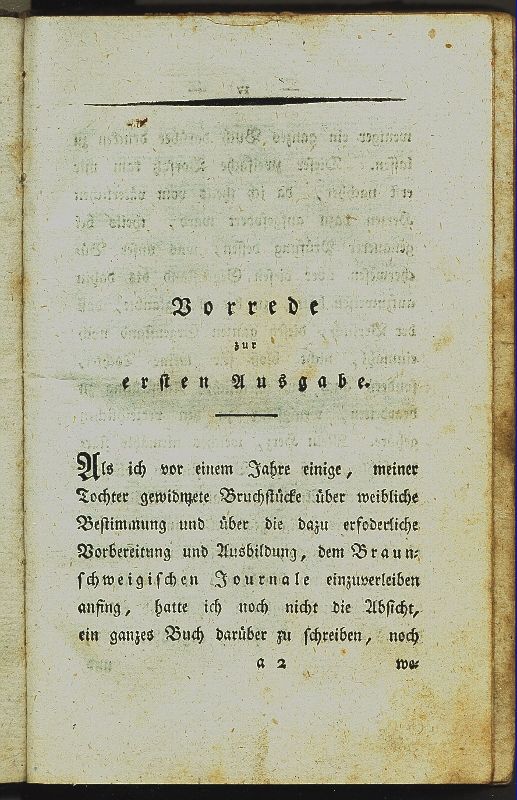 Vorrede
zur
ersten Ausgabe.
Als ich vor einem Jahre einige, meiner
Tochter gewidmete Bruchstücke über weibliche
Bestimmung und über die dazu erfoderliche
Vorbereitung und Ausbildung, dem Braun-
schweigischen Journale einzuverleiben
anfing, hatte ich noch nicht die Absicht,
ein ganzes Buch darüber zu schreiben, noch
a 2 we-